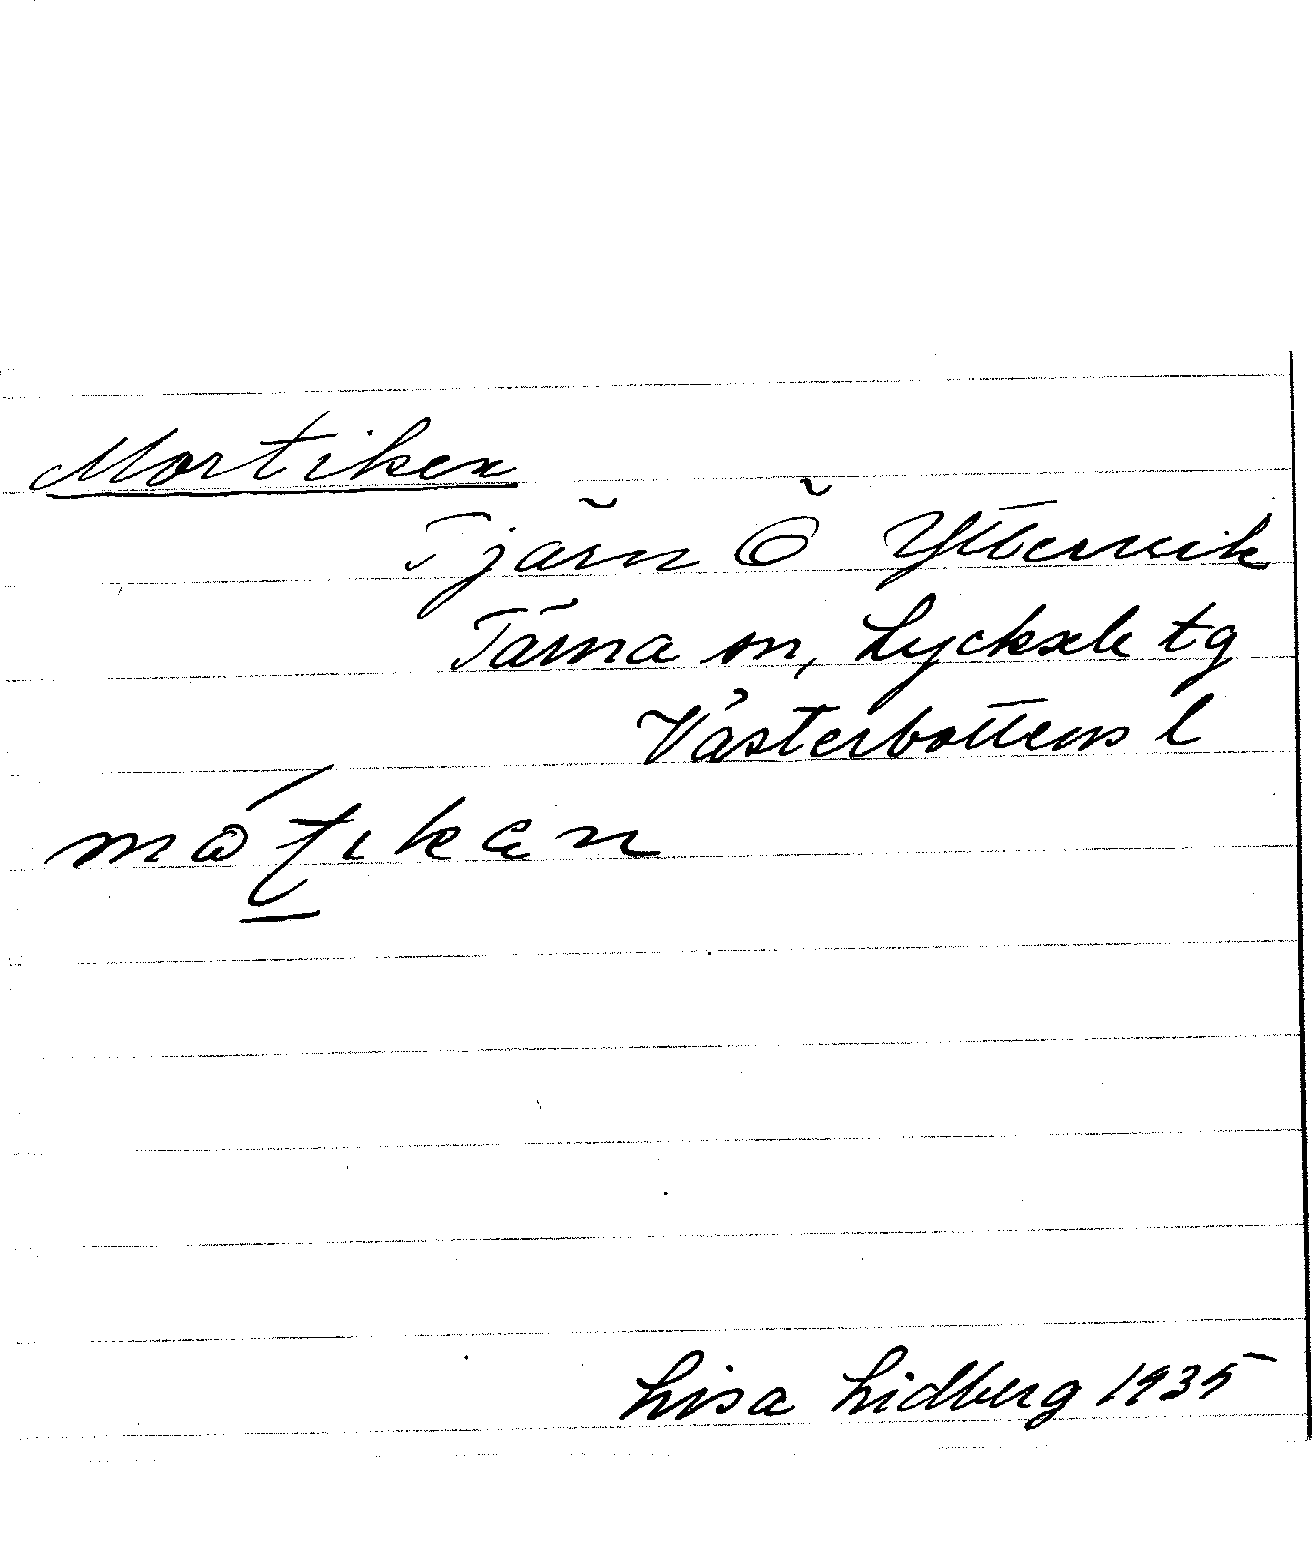 Mortiken
Tjärn Ö Yttervik
Tärna sn, Lycksele tg
Västerbottens l
Lisa Lidberg 1935